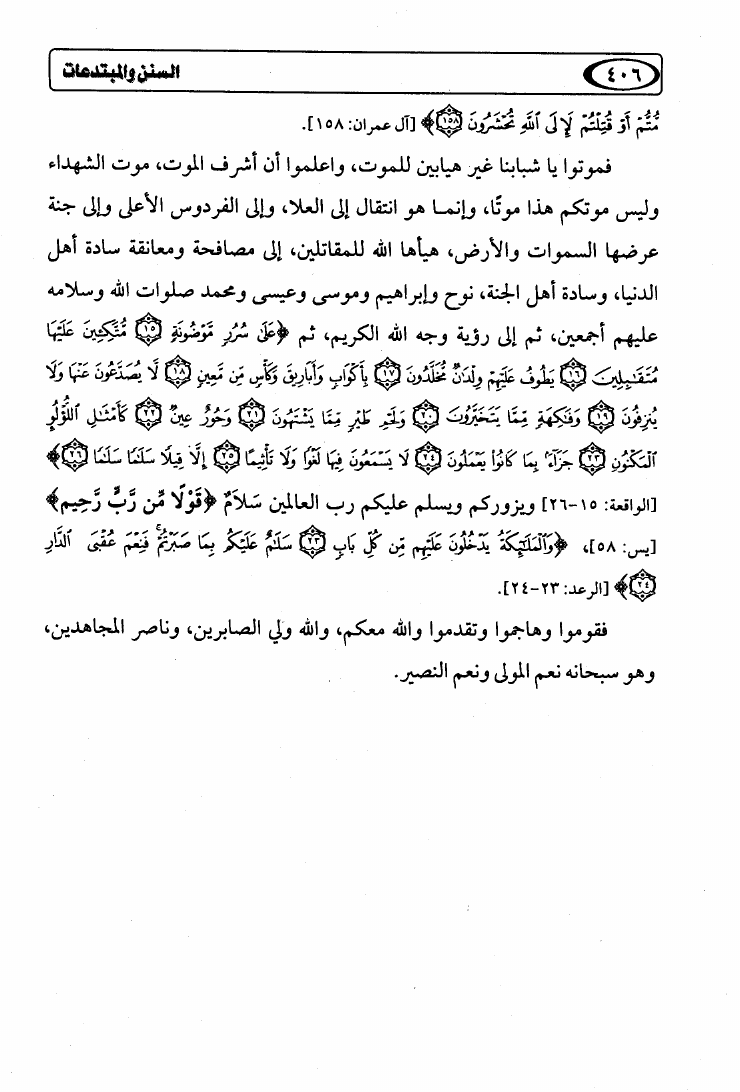 ٤٠٦ السنن والمبتدعات
مُّتُّمْ أَوْ قُتِلْتُمْ لَإِلَى ٱللَّهِ تُحْشَرُونَ ﴿١٥٨﴾﴾ [آل عمران: ١٥٨].
فموتوا يا شبابنا غير هيابين للموت، واعلموا أن أشرف الموت، موت الشهداء
وليس موتكم هذا موتًا، وإنما هو انتقال إلى العلا، وإلى الفردوس الأعلى وإلى جنة
عرضها السموات والأرض، هيأها الله للمقاتلين، إلى مصافحة ومعانقة سادة أهل
الدنيا، وسادة أهل الجنة، نوح وإبراهيم وموسى وعيسى ومحمد صلوات الله وسلامه
عليهم أجمعين، ثم إلى رؤية وجه الله الكريم، ثم ﴿عَلَىٰ سُرُرٍ مَّوْضُونَةٍ ﴿١٥﴾ مُّتَّكِـِٔينَ عَلَيْهَا
مُتَقَـٰبِلِينَ ﴿١٦﴾ يَطُوفُ عَلَيْهِمْ وِلْدَٰنٌ مُّخَلَّدُونَ ﴿١٧﴾ بِأَكْوَابٍ وَأَبَارِيقَ وَكَأْسٍ مِّن مَّعِينٍ ﴿١٨﴾ لَّا يُصَدَّعُونَ عَنْهَا وَلَا
يُنزِفُونَ ﴿١٩﴾ وَفَـٰكِهَةٍ مِّمَّا يَتَخَيَّرُونَ ﴿٢٠﴾ وَلَحْمِ طَيْرٍ مِّمَّا يَشْتَهُونَ ﴿٢١﴾ وَحُورٌ عِينٌ ﴿٢٢﴾ كَأَمْثَـٰلِ ٱللُّؤْلُوِٕ
ٱلْمَكْنُونِ ﴿٢٣﴾ جَزَآءًۢ بِمَا كَانُوا۟ يَعْمَلُونَ ﴿٢٤﴾ لَا يَسْمَعُونَ فِيهَا لَغْوًا وَلَا تَأْثِيمًا ﴿٢٥﴾ إِلَّا قِيلًا سَلَـٰمًا سَلَـٰمًا ﴿٢٦﴾﴾
[الواقعة: ١٥-٢٦] ويزوركم ويسلم عليكم رب العالمين سَلَامٌ ﴿قَوْلًا مِّن رَّبٍّ رَّحِيمٍ﴾
[يس: ٥٨]، ﴿وَٱلْمَلَـٰٓئِكَةُ يَدْخُلُونَ عَلَيْهِم مِّن كُلِّ بَابٍ ﴿٢٣﴾ سَلَـٰمٌ عَلَيْكُم بِمَا صَبَرْتُمْ ۚ فَنِعْمَ عُقْبَى ٱلدَّارِ
﴿٢٤﴾﴾ [الرعد: ٢٣-٢٤].
فقوموا وهاجموا وتقدموا والله معكم، والله ولي الصابرين، وناصر المجاهدين،
وهو سبحانه نعم المولى ونعم النصير.